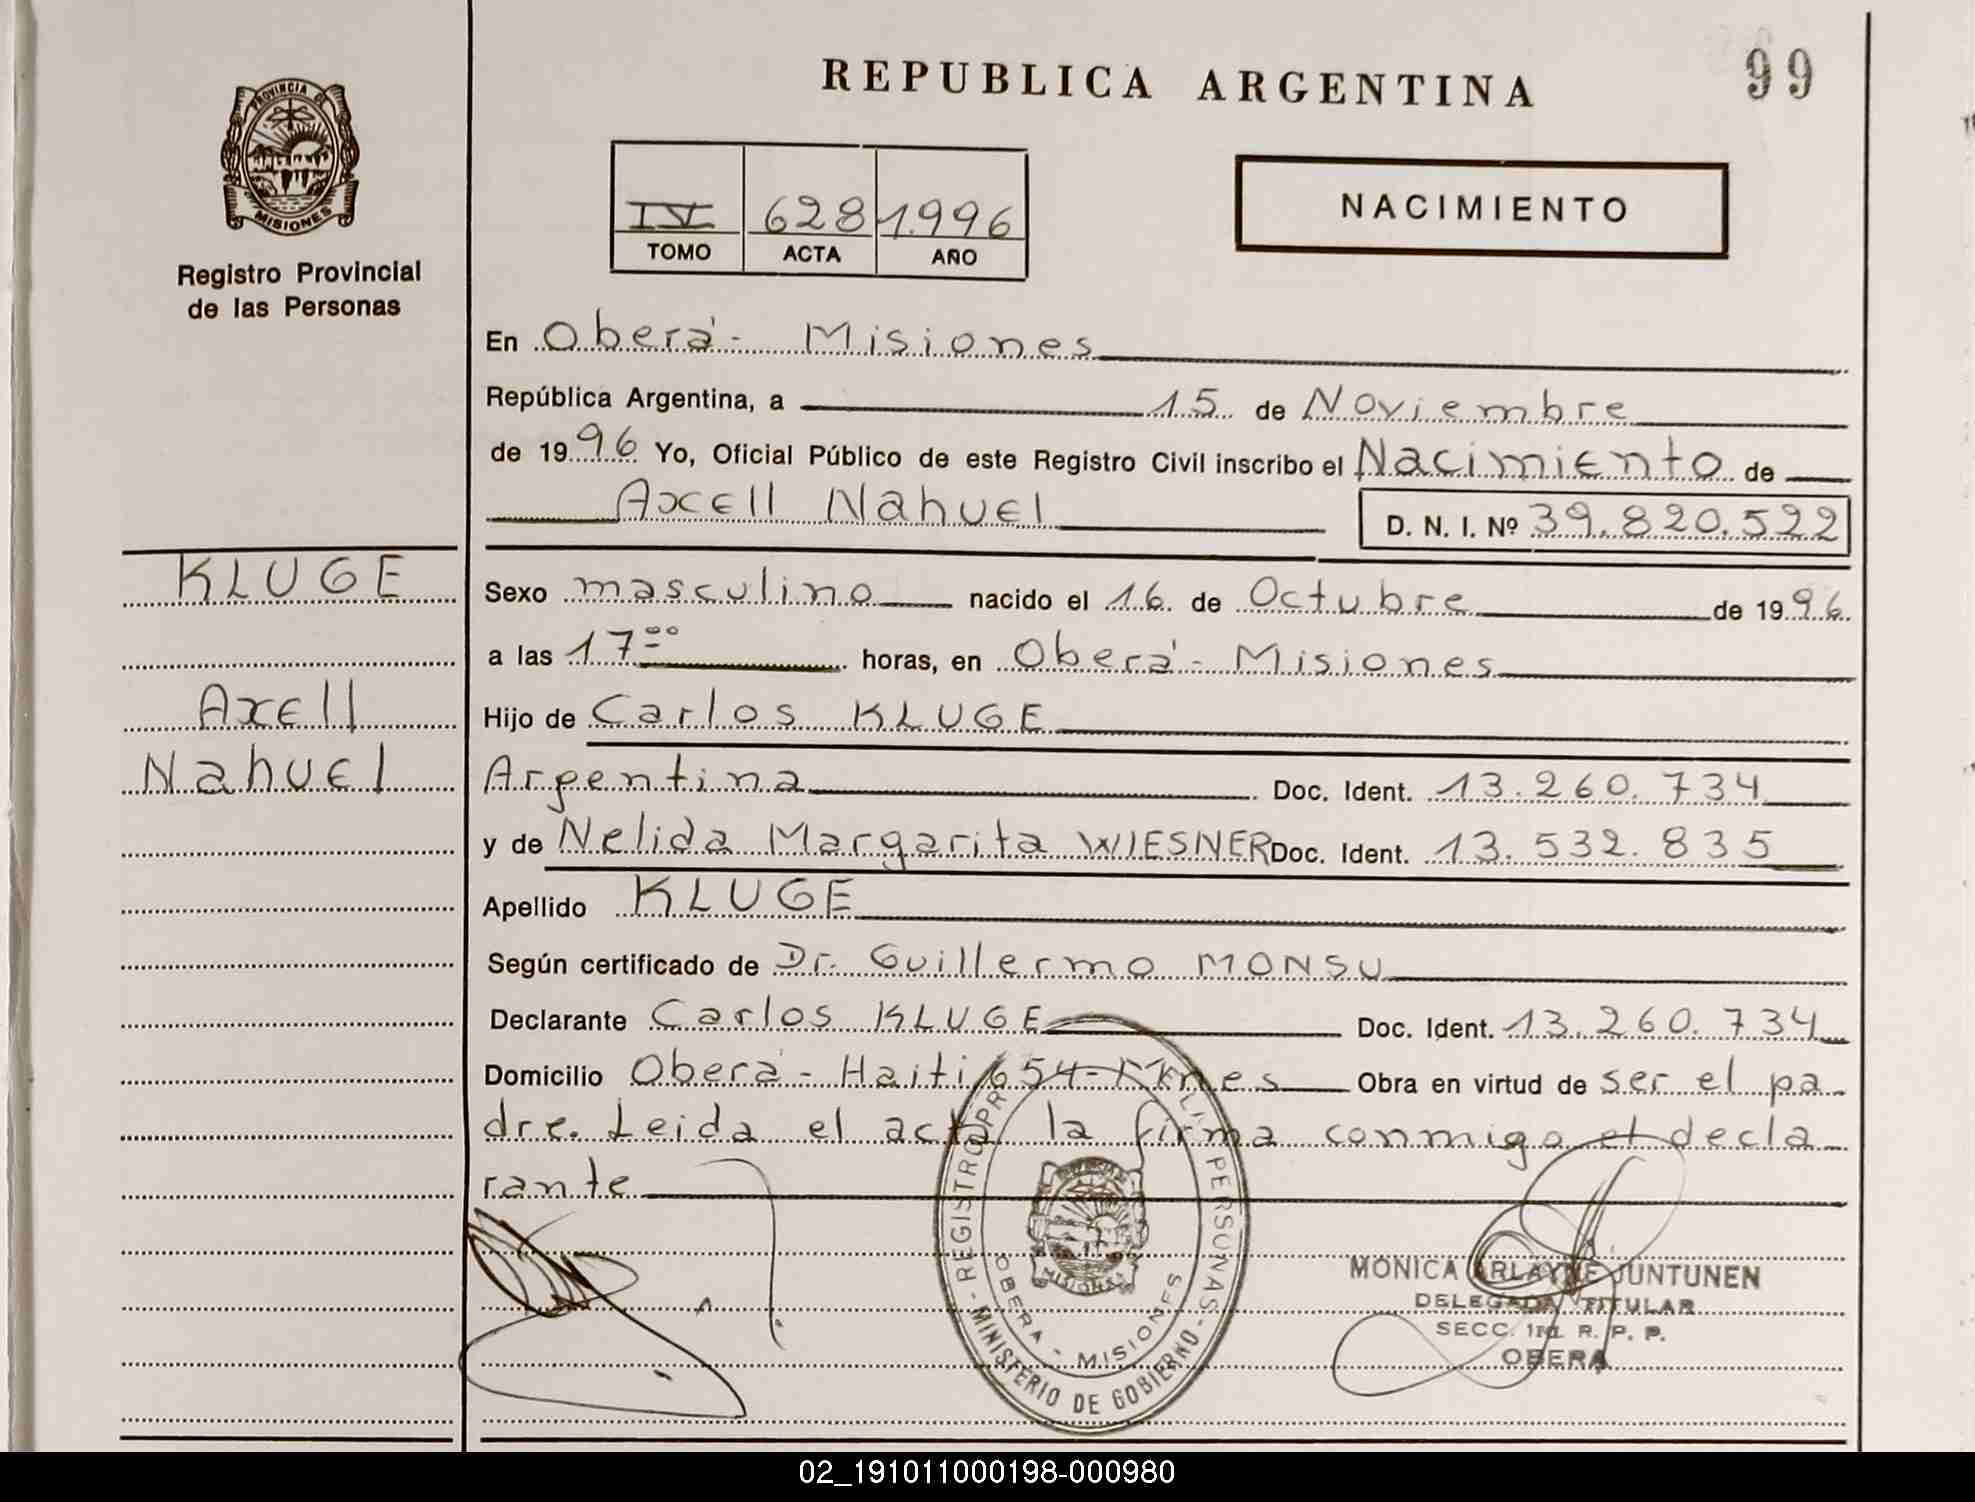 REPUBLICA ARGENTINA
99
PROVINCIA DE
MISIONES
Registro Provincial
de las Personas
IV 628 1.996
TOMO ACTA AÑO
NACIMIENTO
En Oberá - Misiones
República Argentina, a 15 de Noviembre
de 1996 Yo, Oficial Público de este Registro Civil inscribo el Nacimiento de
Axell Nahuel D. N. I. Nº 39.820.522
KLUGE
Axell
Nahuel
Sexo masculino nacido el 16 de Octubre de 1996
a las 17 00 horas, en Oberá - Misiones
Hijo de Carlos KLUGE
Argentina Doc. Ident. 13.260.734
y de Nelida Margarita WIESNER Doc. Ident. 13.532.835
Apellido KLUGE
Según certificado de Dr. Guillermo MONSU
Declarante Carlos KLUGE Doc. Ident. 13.260.734
Domicilio Oberá - Haiti 654 - Mnes Obra en virtud de ser el pa
dre. Leida el acta la firma conmigo el decla
rante
MINISTERIO DE GOBIERNO - REGISTRO PR PERSONAS -
OBERA - MISIONES
MISIONES
MONICA ARLAYNE JUNTUNEN
DELEGADA TITULAR
SECC. 1ra. R. P. P.
OBERA
02_191011000198-000980